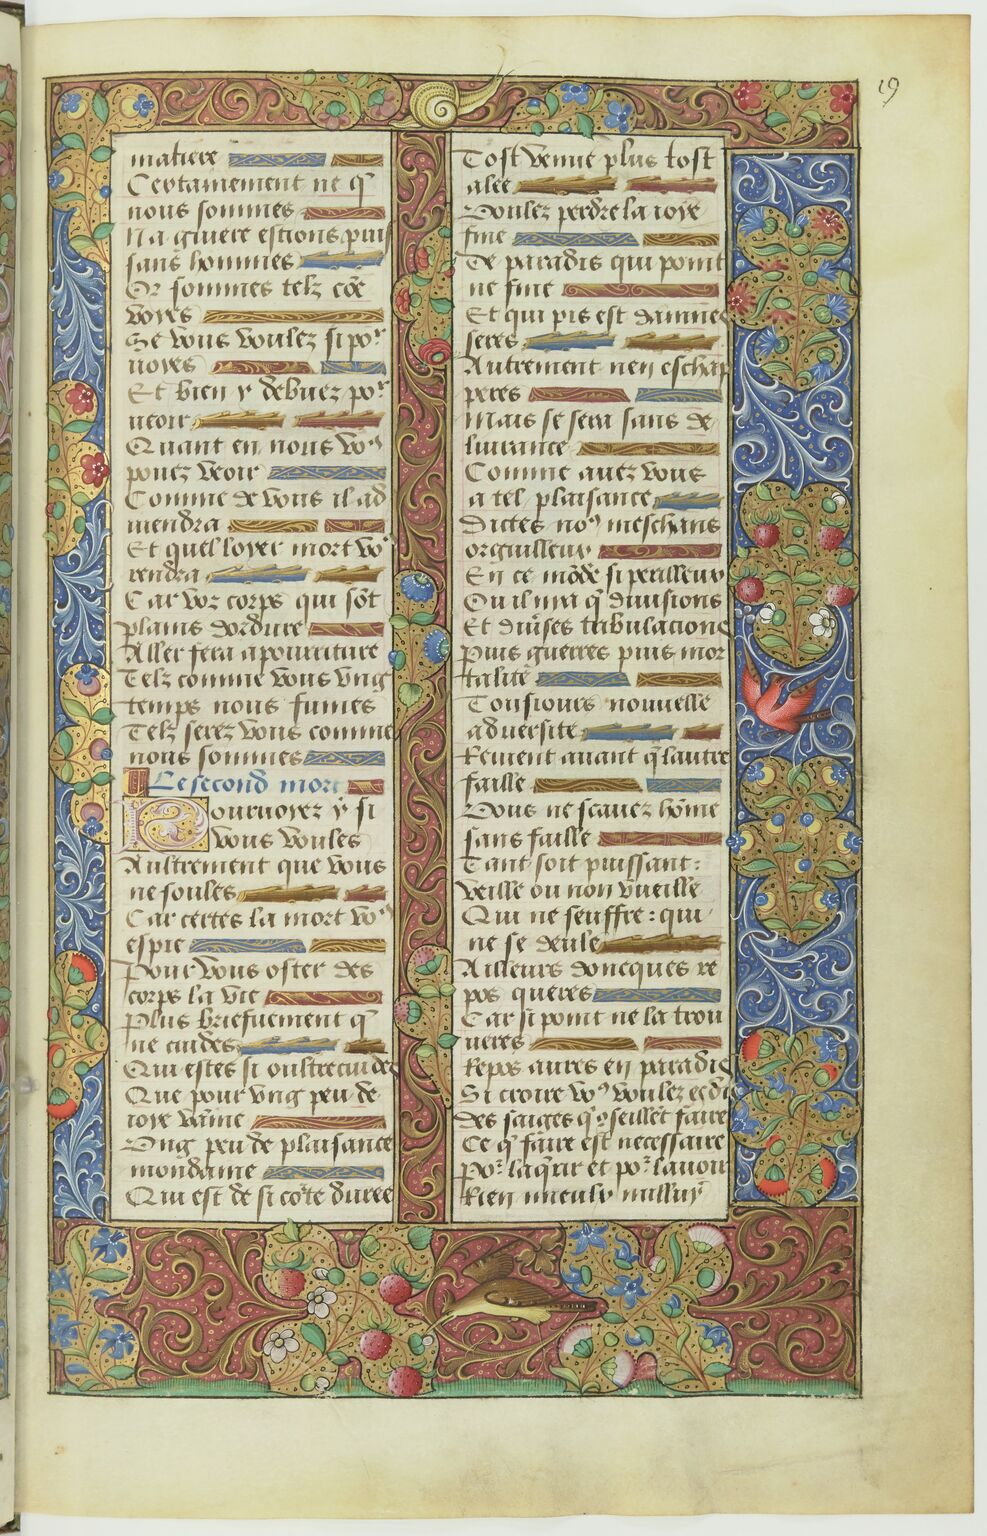 19
matiere
Certainement ne q̃
nous sommes
Na guiere estions puis
sans hommes
Or sommes telz cõe
voyes
Se vous voulez si poʳ
uoyes
Et bien y debuez poʳ
ueoir
Quant en nous voꝰ
pouez veoir
Comme de vous il ad
uiendra
Et quel loyer mort voꝰ
rendra
Car voz corps qui sõt
plains dordure
Aller fera a pourriture
Telz comme vous vng
temps nous fumes
Telz serez vous comme
nous sommes
Le second mort
Pouruoyez y si
vous voules
Aultrement que vous
ne soules
Car certes la mort voꝰ
espie
Pour vous oster des
corps la vie
Plus briefuement q̃
ne cuides
Qui estes si oultrecuidez
Que pour vng peu de
ioye vaine
Ung peu de plaisance
mondaine
Qui est de si co᷑te duree
Tost venue plus tost
alee
Voulez perdre la ioye
fine
De paradis qui point
ne fine
Et qui pis est damnes
seres
Autrement nen eschap
peres
Mais se sera sans de
liurance
Comme auez vous
a tel plaisance
Dictes noꝰ meschans
orguilleux
En ce mõde si perilleux
Ou il nya q̃ diuisions
Et diũses tribulacions
Puis guerres puis mor
talite
Tousiours nouuelle
aduersite
Reuient auant q̃ lautre
faille
Vous ne scauez hõme
sans faille
Tant soit puissant:
veille ou non vueille
Qui ne seuffre: qui
ne se deule
Ailleurs doncques re
pos queres
Car si point ne la trou
ueres
Repos aures en paradis
Si croire voꝰ voulez es dis
des saiges q̃ ꝯseillẽt faire
Ce q̃ faire est necessaire
Poʳ laq̃rir et poʳ lauoir
Rien nueuly nulluy